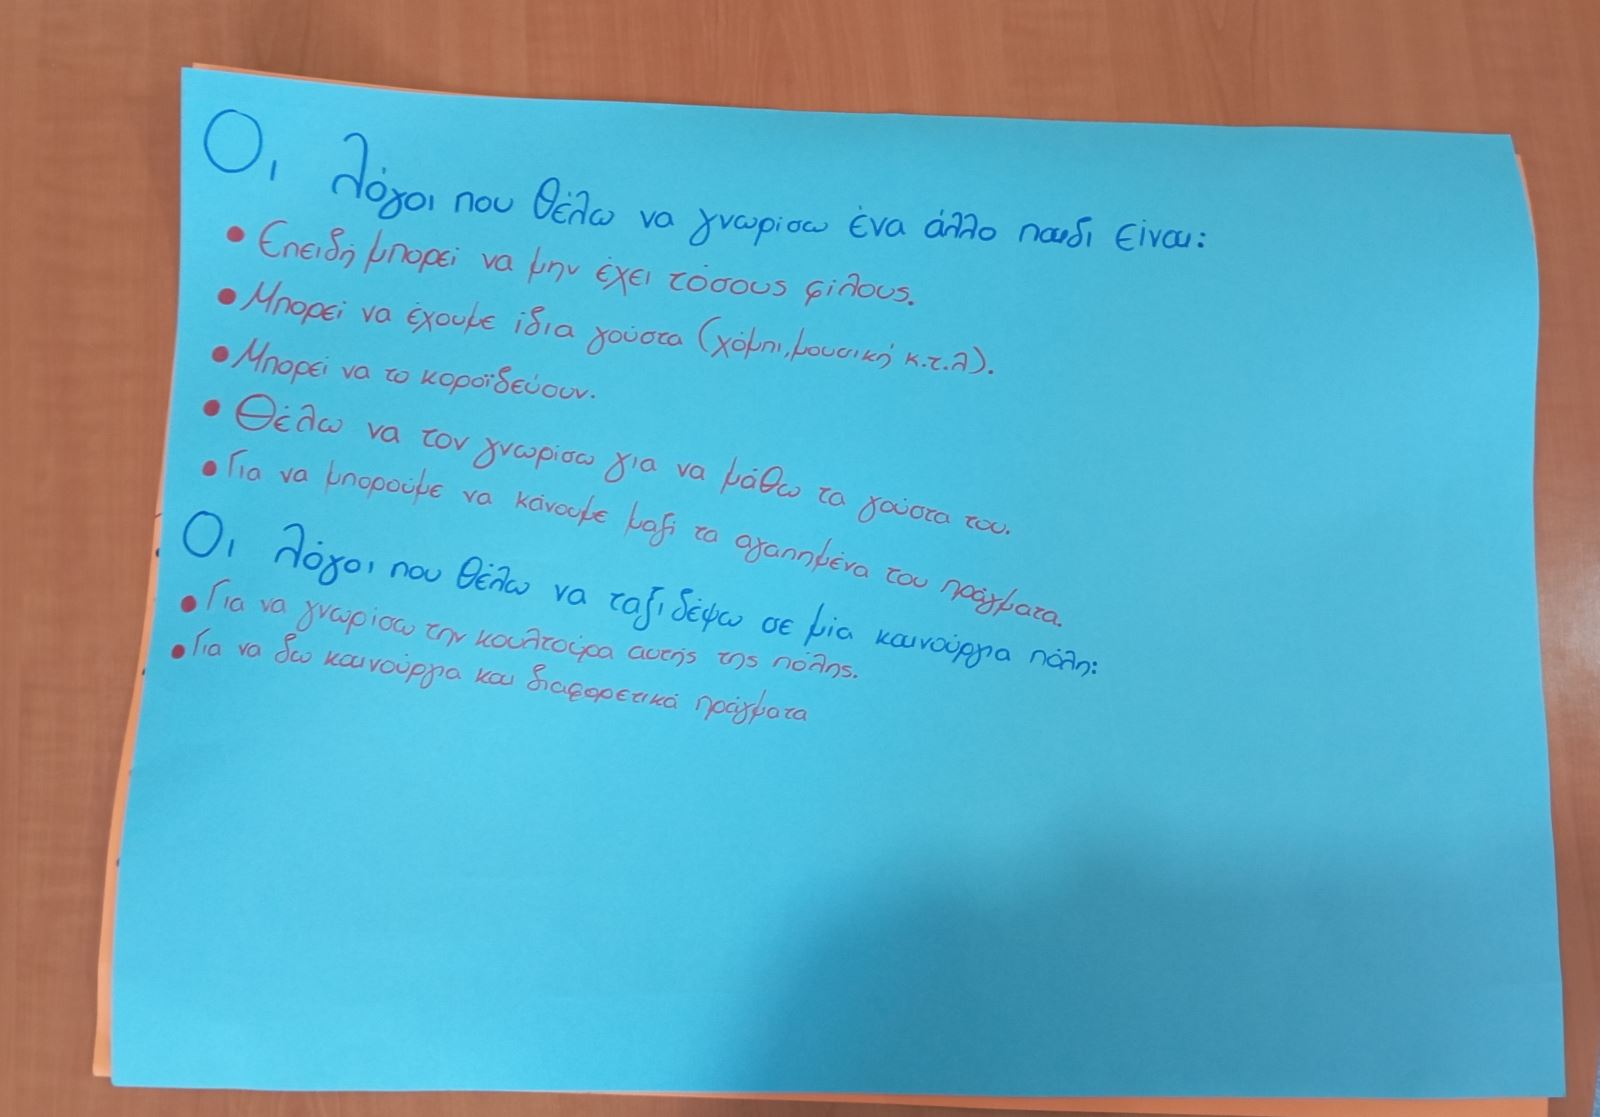 Οι λόγοι που θέλω να γνωρίσω ένα άλλο παιδί είναι:
• Επειδή μπορεί να μην έχει τόσους φίλους.
• Μπορεί να έχουμε ίδια γούστα (χόμπι, μουσική κ.τ.λ).
• Μπορεί να το κοροϊδεύουν.
• Θέλω να τον γνωρίσω για να μάθω τα γούστα του.
• Για να μπορούμε να κάνουμε μαζί τα αγαπημένα του πράγματα.
Οι λόγοι που θέλω να ταξιδέψω σε μία καινούργια πόλη:
• Για να γνωρίσω την κουλτούρα αυτής της πόλης.
• Για να δω καινούργια και διαφορετικά πράγματα